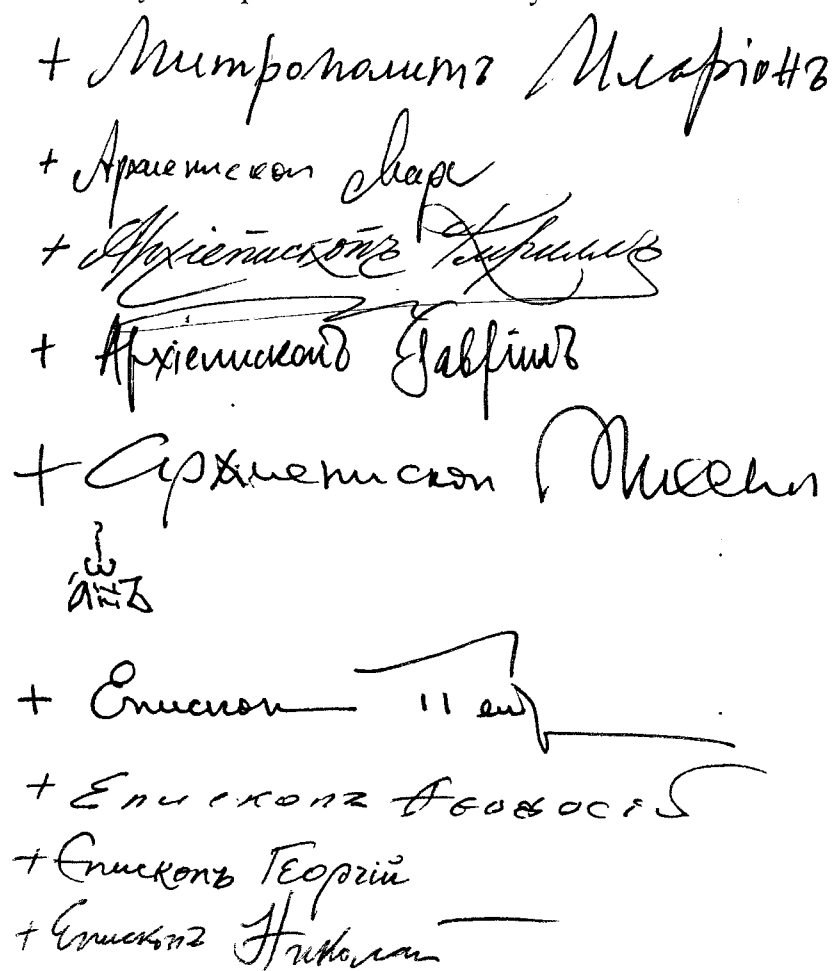 + Митрополитъ Иларіонъ
+ Архиепископ Марк
+ Архіепископъ Кириллъ
+ Архіепископъ Гавріилъ
+ Архиепископ
+ Епископ Петр
+ Епископъ Ѳеодосій
+ Епископъ Георгій
+ Епископъ Николай